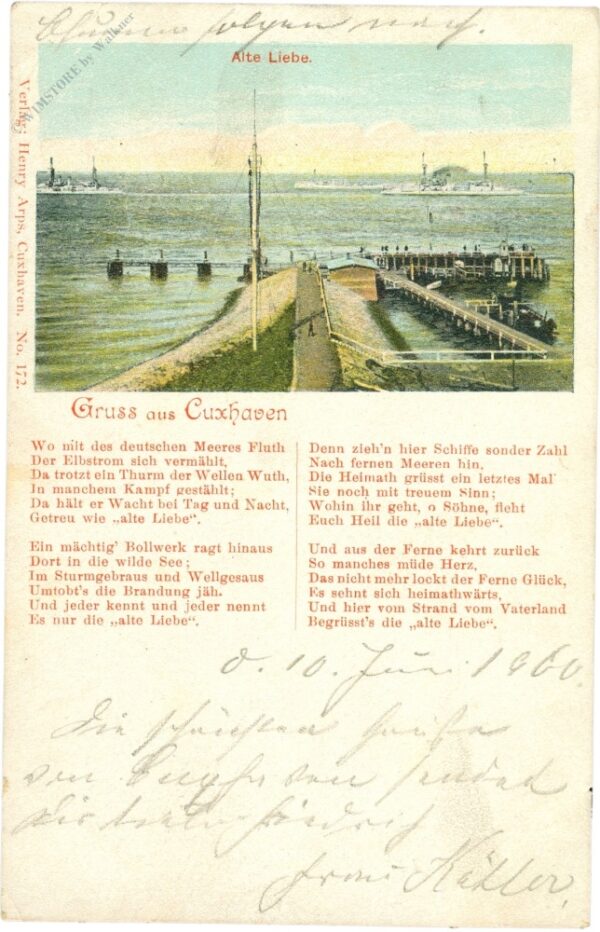 Blumen folgen nach.
Alte Liebe.
WIMSTORE by Walkner
Verlag: Henry Arps, Cuxhaven. No. 172.
Gruss aus Cuxhaven
Wo mit des deutschen Meeres Fluth
Der Elbstrom sich vermählt,
Da trotzt ein Thurm der Wellen Wuth,
In manchem Kampf gestählt;
Da hält er Wacht bei Tag und Nacht,
Getreu wie „alte Liebe“.
Ein mächtig' Bollwerk ragt hinaus
Dort in die wilde See;
Im Sturmgebraus und Wellgesaus
Umtobt's die Brandung jäh.
Und jeder kennt und jeder nennt
Es nur die „alte Liebe“.
Denn zieh'n hier Schiffe sonder Zahl
Nach fernen Meeren hin,
Die Heimath grüsst ein letztes Mal
Sie noch mit treuem Sinn;
Wohin ihr geht, o Söhne, fleht
Euch Heil die „alte Liebe“.
Und aus der Ferne kehrt zurück
So manches müde Herz,
Das nicht mehr lockt der Ferne Glück,
Es sehnt sich heimathwärts,
Und hier vom Strand vom Vaterland
Begrüsst's die „alte Liebe“.
d. 10. Juni 1900.
Die schönsten Grüße
von sendet
Friedrich
Frau Käller